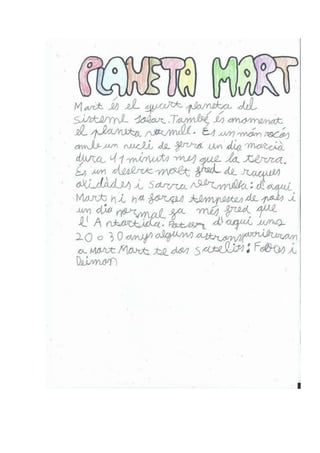 PLANETA MART
Mart és el quart planeta del
sisteml solar. També és anomenat
el planeta vermill. És un món rocós
amb un nucli de ferro un dia marcià
dura 41 minuts mes que la terra.
És un desert molt fred de roques
oxidades i sorra vermella: d'aqui
Mart hi ha forçes tempestes de pols i
un dia normal fa més fred que
l'Antartida. d'aqui uns
20 o 30 anys alguns astronautes arriveran
a Mart Mart te dos satelits: Fobos i
Deimon